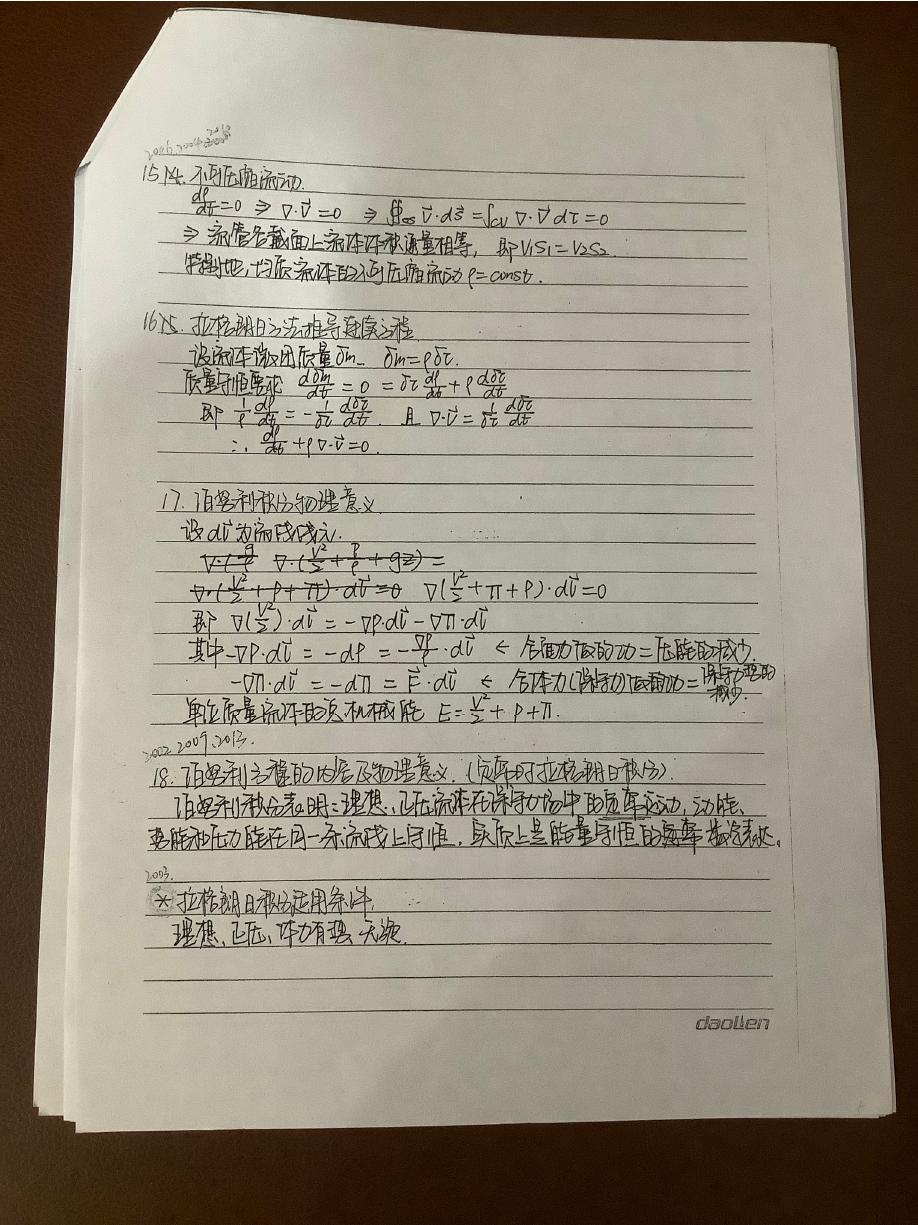 2006.2004
15 14. 不可压缩流动.
dρ/dt=0 ⇒ ∇·v⃗=0 ⇒ ∯cs v⃗·ds⃗=∫cv ∇·v⃗ dτ=0
⇒ 流管各截面上流体体积通量相等, 即V₁S₁=V₂S₂.
特别地, 均质流体的不可压缩流动 ρ=const.
16 15. 拉格朗日方法推导连续方程.
设流体微团质量δm. δm=ρδτ.
质量守恒要求 dδm/dt=0=δτ dρ/dt+ρ dδτ/dt
即 1/ρ dρ/dt=-1/δτ dδτ/dt. 且 ∇·v⃗=1/δτ dδτ/dt
∴ dρ/dt+ρ∇·v⃗=0.
17. 伯努利积分物理意义.
设dl⃗为流线线元.
∇·(V²/2+P/ρ+gz)=
∇·(V²/2+P+π)·dl⃗=0 ∇(V²/2+π+P)·dl⃗=0
即 ∇(V²/2)·dl⃗=-∇P·dl⃗-∇π·dl⃗
其中-∇P·dl⃗=-dP=-∇p/ρ·dl⃗ ← 合面力做的功=压能的减少.
-∇π·dl⃗=-dπ=F⃗·dl⃗ ← 合体力(保守力)做的功=保守力势的减少.
单位质量流体的总机械能 E=V²/2+P+π.
2002 2009.2013.
18. 伯努利方程的内容及物理意义. (定常时拉格朗日积分).
伯努利积分表明: 理想、正压流体在保守力场中的定常运动, 动能、
势能和压力能在同一条流线上守恒. 实质上是能量守恒的数学表达.
2003.
* 拉格朗日积分适用条件.
理想、正压、体力有势、无旋.
daollen